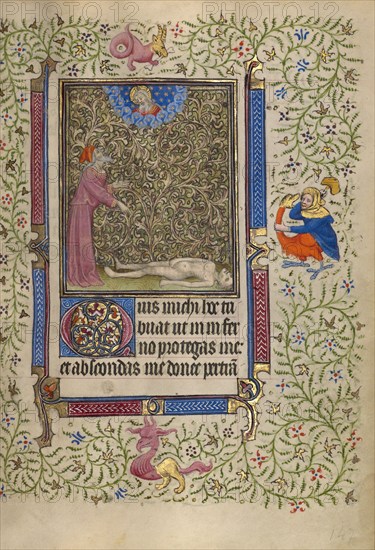 Quis michi hoc tri
buat ut in infer
no protegas me
et abscondas me donec pertrā